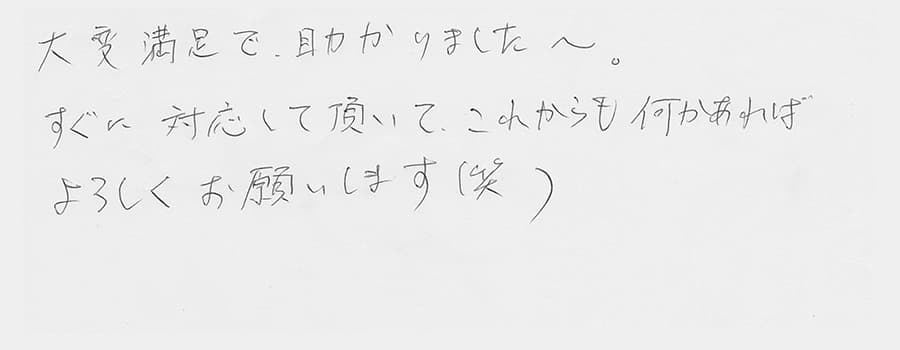 大変満足で、助かりました〜。
すぐに対応して頂いて、これからも何かあれば
よろしくお願いします(笑)